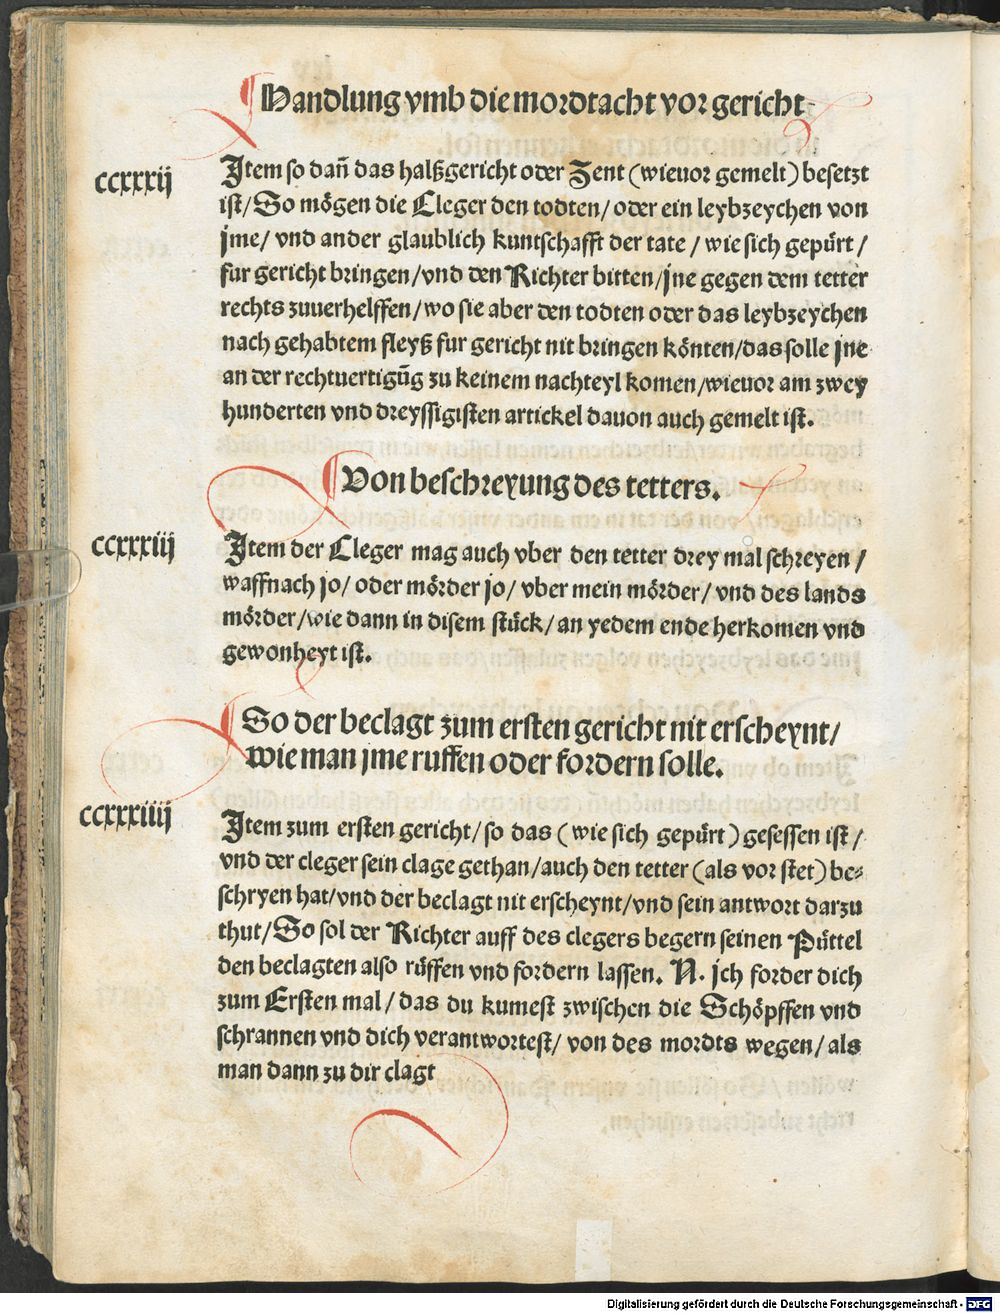 Handlung vmb die mordtacht vor gericht
ccxxxij
Jtem so dañ das halßgericht oder Zent (wieuor gemelt) besetzt
ist/ So mögen die Cleger den todten/ oder ein leybzeychen von
jme/ vnd ander glaublich kuntschafft der tate / wie sich gepürt /
fur gericht bringen/ vnd den Richter bitten/ jne gegen dem tetter
rechts zuuerhelffen/ wo sie aber den todten oder das leybzeychen
nach gehabtem fleyß fur gericht nit bringen könten/ das solle jne
an der rechtuertigũg zu keinem nachteyl komen/ wieuor am zwey
hunderten vnd dreyssigisten artickel dauon auch gemelt ist.
Von beschreyung des tetters.
ccxxxiij
Jtem der Cleger mag auch vber den tetter drey mal schreyen /
waffnach jo/ oder mörder jo/ vber mein mörder/ vnd des lands
mörder/ wie dann in disem stück/ an yedem ende herkomen vnd
gewonheyt ist.
So der beclagt zum ersten gericht nit erscheynt/
wie man jme ruffen oder fordern solle.
ccxxxiiij
Jtem zum ersten gericht/ so das (wie sich gepürt) gesessen ist/
vnd der cleger sein clage gethan/ auch den tetter (als vor stet) be⸗
schryen hat/ vnd der beclagt nit erscheynt/ vnd sein antwort darzu
thut/ So sol der Richter auff des clegers begern seinen Püttel
den beclagten also rüffen vnd fordern lassen. N. ich forder dich
zum Ersten mal/ das du kumest zwischen die Schöpffen vnd
schrannen vnd dich verantwortest/ von des mordts wegen/ als
man dann zu dir clagt
Digitalisierung gefördert durch die Deutsche Forschungsgemeinschaft - DFG